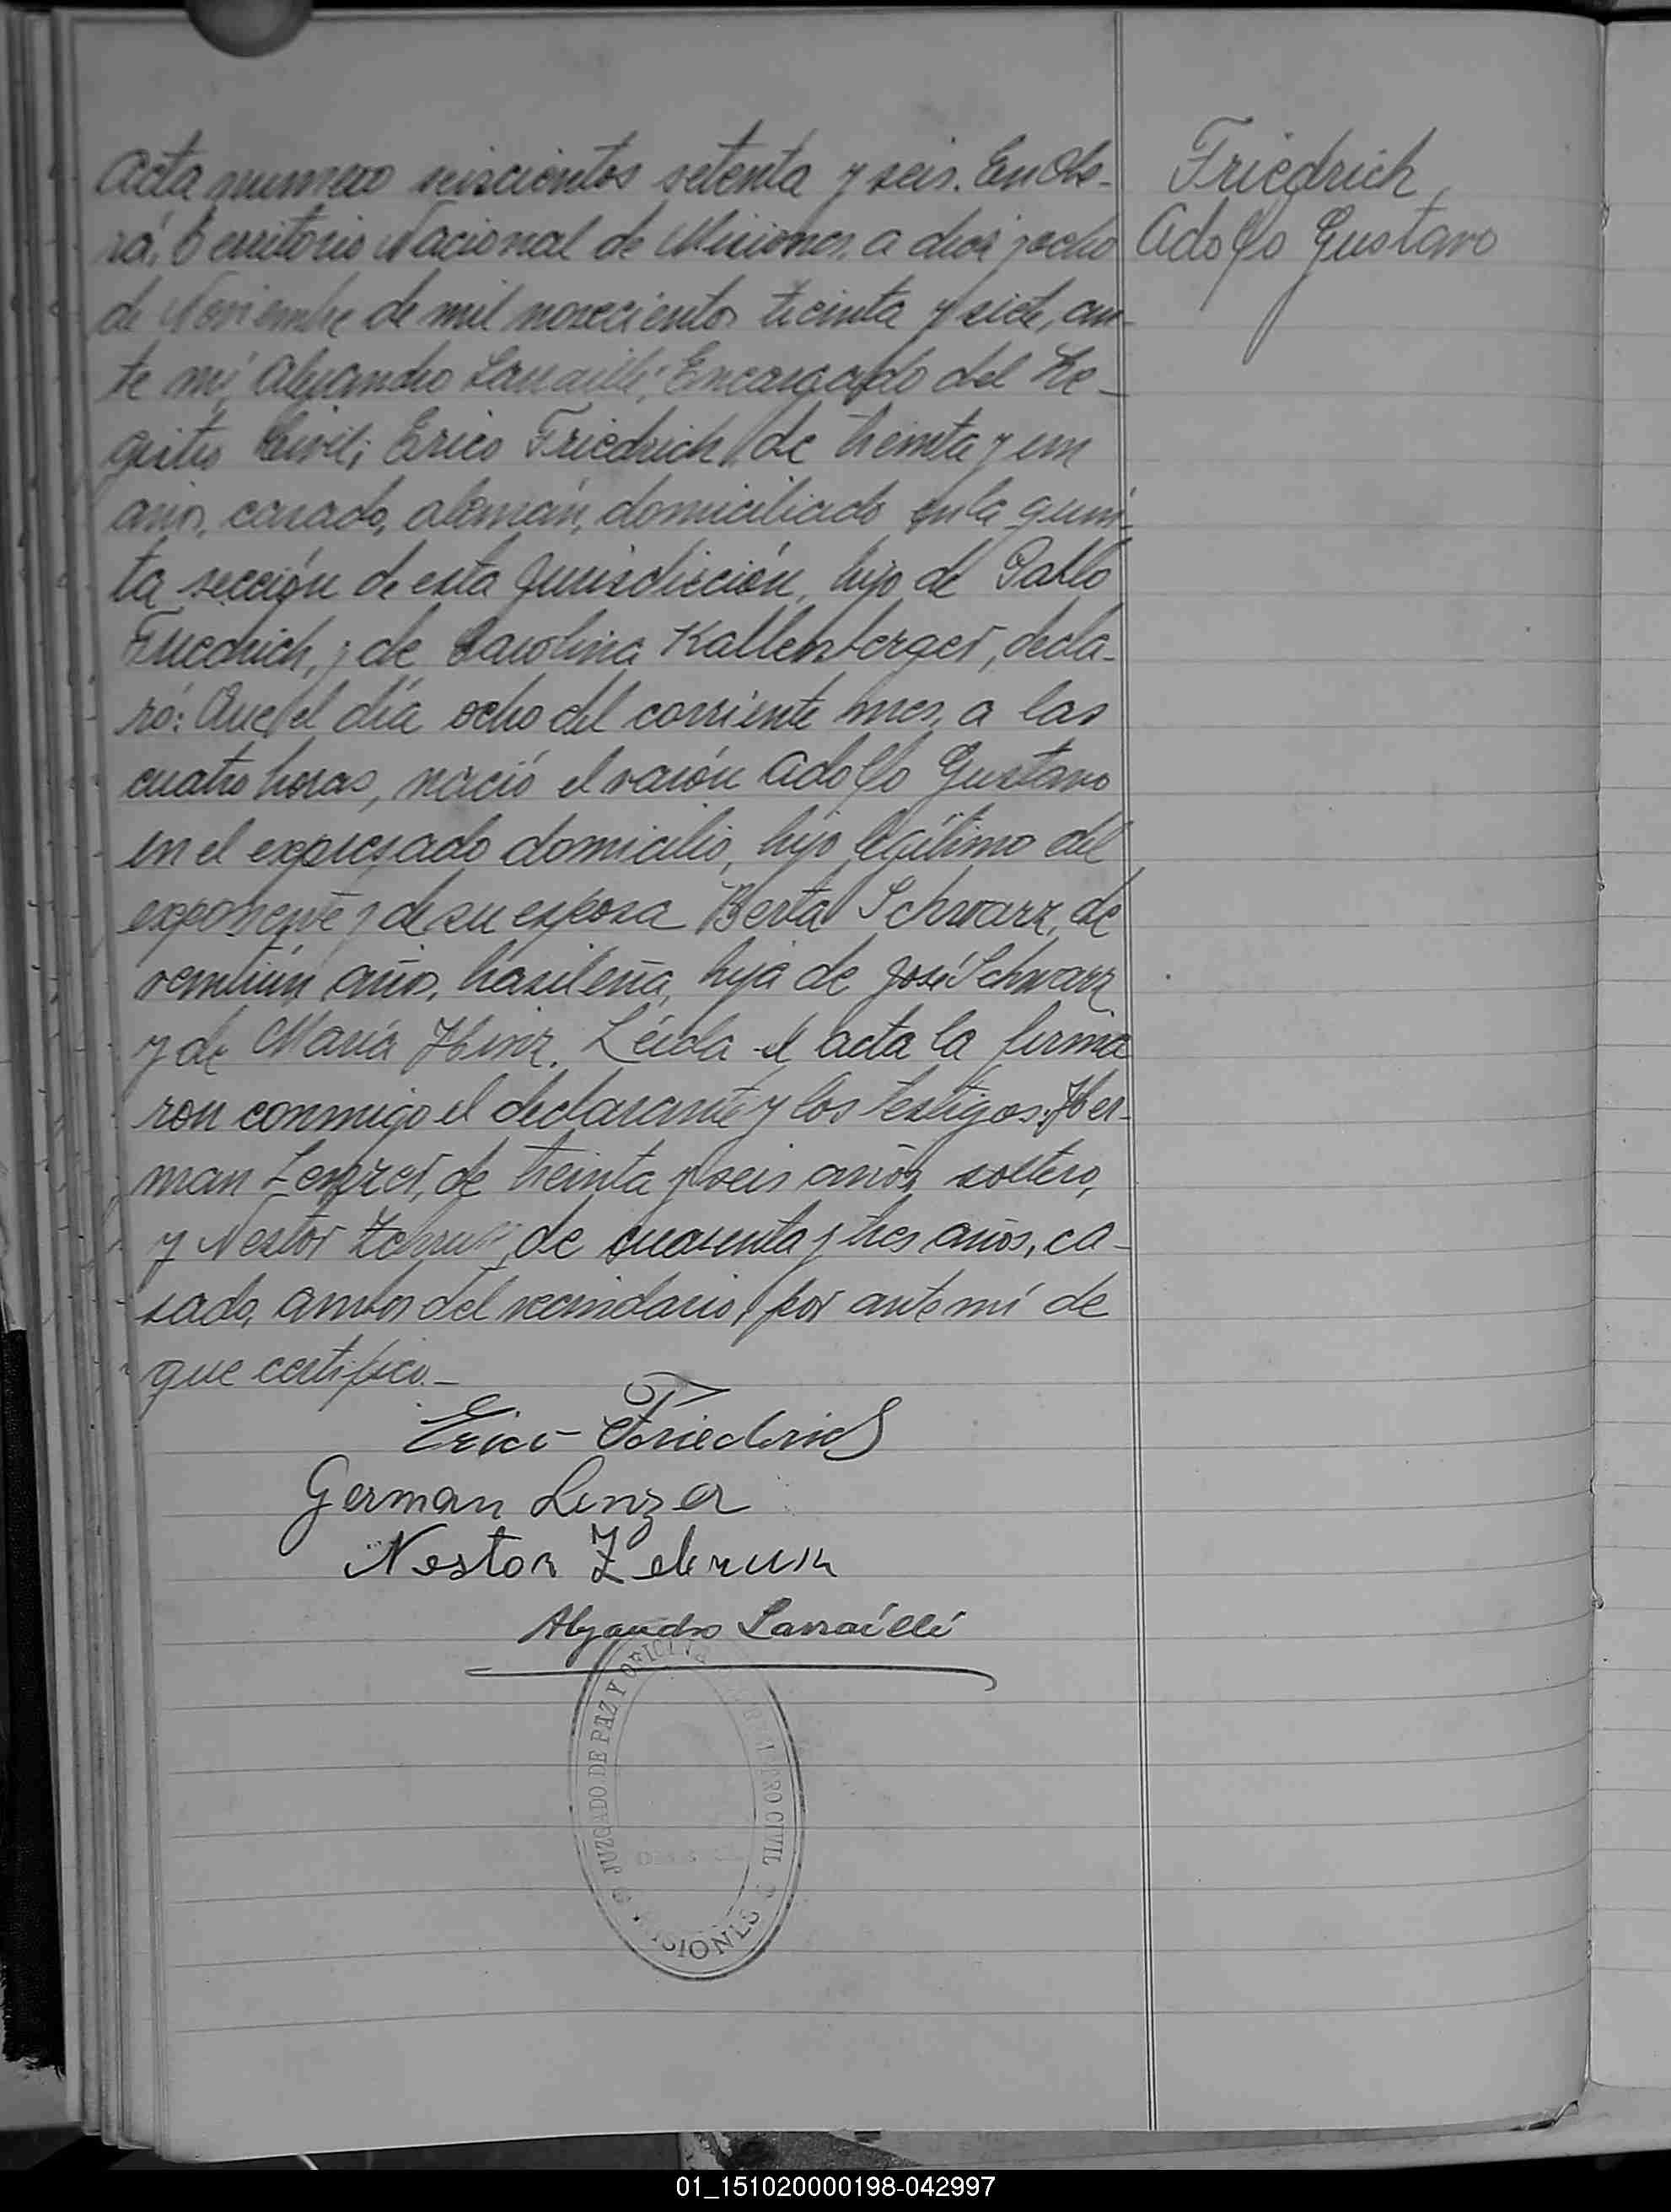 Acta numero seiscientos setenta y seis. En Obe-
rá, Territorio Nacional de Misiones, a diez y ocho
de Noviembre de mil novecientos treinta y siete, an-
te mí, Alejandro Larraillé, Encargado del Re-
gistro Civil; Erico Friedrich, de treinta y un
años, casado, alemán, domiciliado en la quin-
ta sección de esta jurisdicción, hijo de Pablo
Friedrich, y de Carolina Kallenberger, decla-
ró: Que el día ocho del corriente mes, a las
cuatro horas, nació el varón Adolfo Gustavo
en el expresado domicilio, hijo legítimo del
exponente y de su esposa Berta Schwarz, de
veintiún años, brasileña, hija de José Schwarz
y de María Hinz. Leída el acta la firma
ron conmigo el declarante y los testigos: Her-
man Lenzer, de treinta y seis años, soltero,
y Nestor, de cuarenta y tres años, ca-
sado, ambos del vecindario, por ante mí de
que certifico.-
Friedrich,
Adolfo Gustavo
Erico Friedrich
German Lenzer
Nestor
Alejandro Larraillé
JUZGADO DE PAZ Y OFICINA
REGISTRO CIVIL
MISIONES
01_151020000198-042997